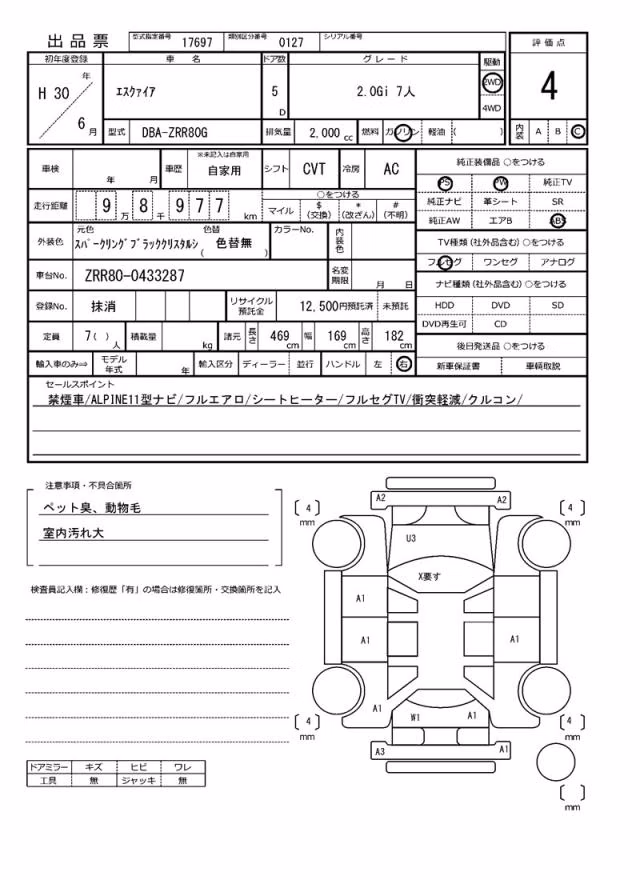 出品票 型式指定番号 17697 類別区分番号 0127 シリアル番号
評価点
4
内装 A B C
初年度登録 車名 ドア数 グレード 駆動
H 30 年 6 月 エスクァイア 5 D 2.0Gi 7人 2WD 4WD
型式 DBA-ZRR80G 排気量 2,000 cc 燃料 ガソリン 軽油 ( )
車検 年 月 車歴 ※未記入は自家用 自家用 シフト CVT 冷房 AC
走行距離 9 万 8 千 9 7 7 km
○をつける
マイル $ (交換) * (改ざん) # (不明)
外装色 元色 スパークリングブラッククリスタルシ 色替 ( 色替無 ) カラーNo. 内装色
車台No. ZRR80-0433287 名変期限 月 日
登録No. 抹消 リサイクル預託金 12,500円預託済 未預託
定員 7( ) 人 積載量 kg 諸元 長さ 469 cm 幅 169 cm 高さ 182 cm
輸入車のみ⇒ モデル年式 年 輸入区分 ディーラー 並行 ハンドル 左 右
純正装備品 ○をつける
PS PW 純正TV
純正ナビ 革シート SR
純正AW エアB ABS
TV種類(社外品含む) ○をつける
フルセグ ワンセグ アナログ
ナビ種類(社外品含む) ○をつける
HDD DVD SD
DVD再生可 CD
後日発送品 ○をつける
新車保証書 車輌取説
セールスポイント
禁煙車/ALPINE11型ナビ/フルエアロ/シートヒーター/フルセグTV/衝突軽減/クルコン/
注意事項・不具合箇所
ペット臭、動物毛
室内汚れ大
検査員記入欄：修復歴「有」の場合は修復箇所・交換箇所を記入
A2 A2
4 mm 4 mm
U3
X要す
A1
A1 A1
A1 W1 A1
4 mm 4 mm
A3 A1
mm
ドアミラー キズ ヒビ ワレ
工具 無 ジャッキ 無